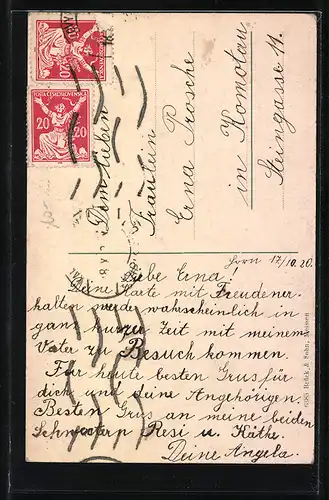 POŠTA ČESKOSLOVENSKÁ
20 20
POŠTA ČESKOSLOVENSKÁ
20 20
Dem lieben
Fräulein
Erna Prosche
in Komotau
Steingasse 11.
17/10.20.
Liebe Erna!
Deine Karte mit Freuden er-
halten werde wahrscheinlich in
ganz kurzer Zeit mit meinem
Vater zu Besuch kommen.
Für heute besten Grus für
dich und deine Angehörigen.
Besten Grus an meine beiden
Schwestern Resi u. Käthe.
Deine Angela.
& Sohn,